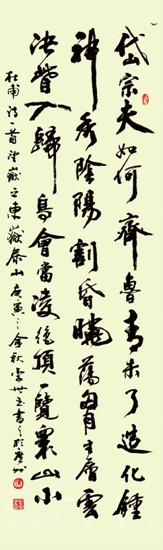 岱宗夫如何齊魯青未了造化鍾
神秀陰陽割昏曉蕩胸生層雲
決眥入歸鳥會當凌絕頂一覽衆山小
杜甫詩一首望嶽之東嶽泰山庚寅之金秋